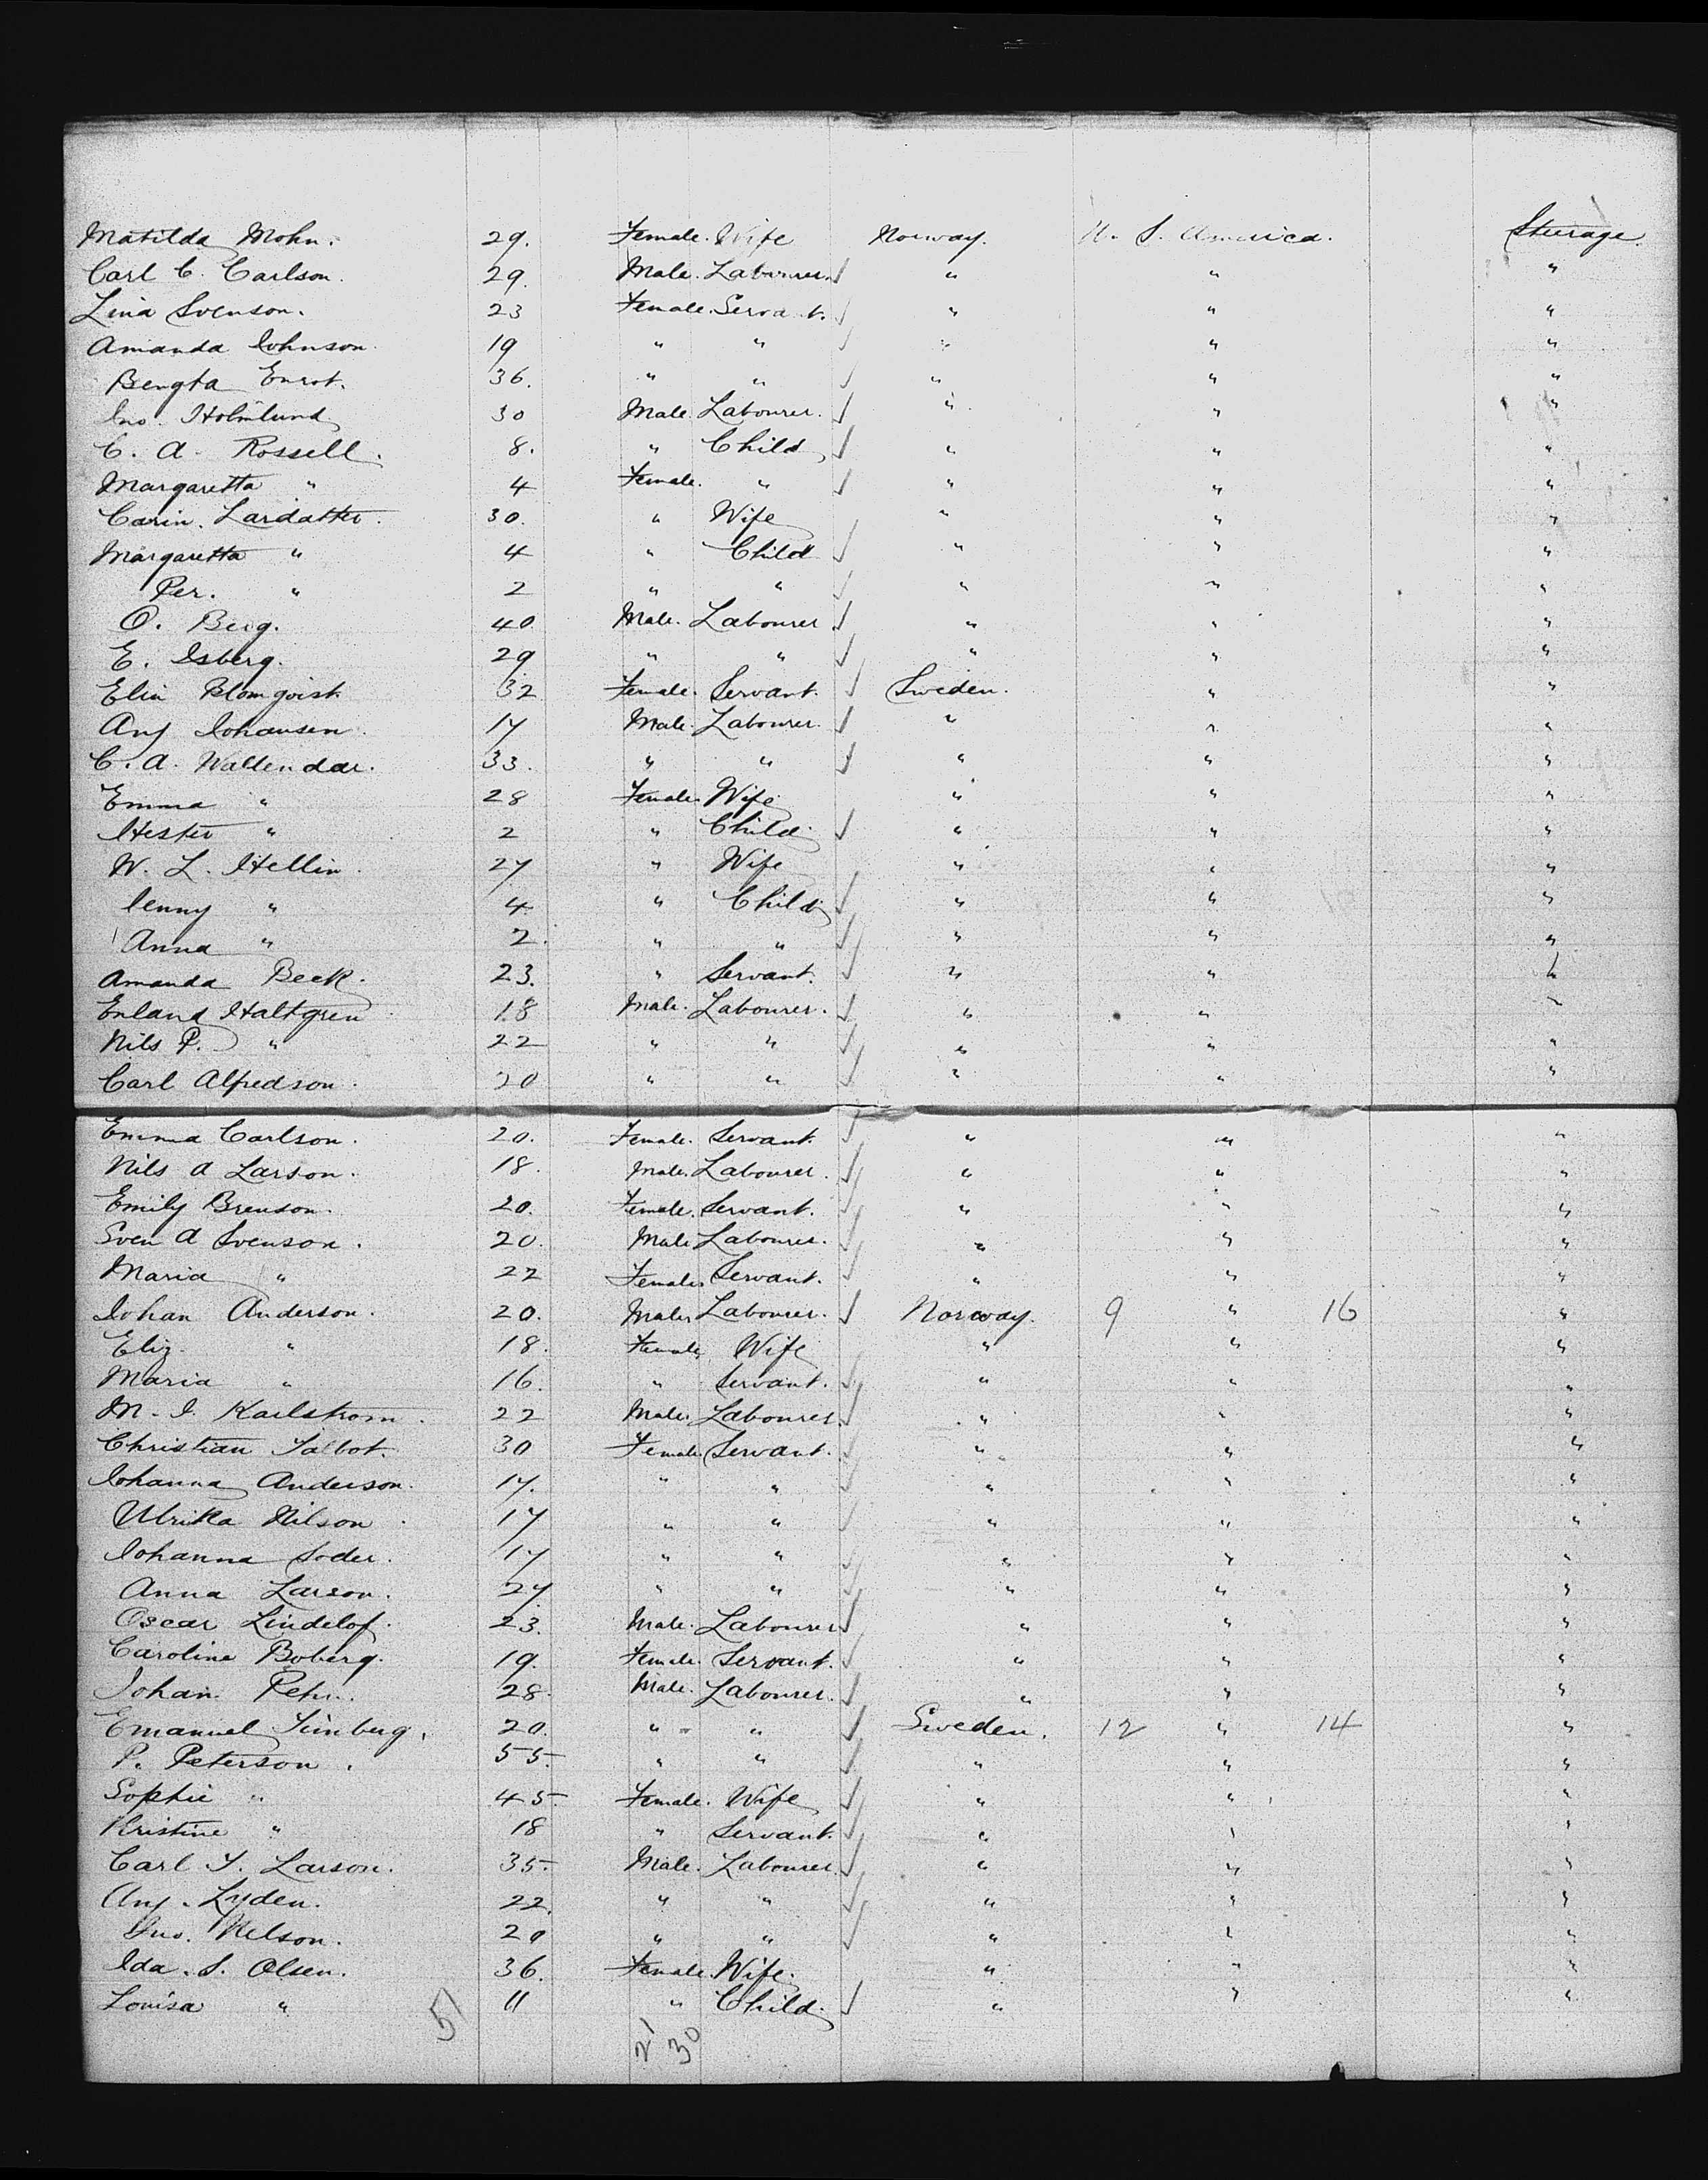 Matilda Mohn. 29. Female. Wife Norway. U. S. America. Steerage.
Carl C. Carlson. 29. Male. Labourer. " " "
Lina Svenson. 23 Female. Servant. " " "
Amanda Johnson. 19 " " " " "
Bengta Enrot. 36. " " " " "
Jno. Holmlund 30 Male. Labourer. " " "
C. A. Rossell. 8. " Child " " "
Margaretta " 4 Female. " " " "
Carin. Lardatter. 30. " Wife " " "
Margaretta " 4 " Child " " "
Per. " 2 " " " " "
O. Berg. 40 Male. Labourer. " " "
E. Isberg. 29 " " " " "
Elin Blomqvist 32 Female. Servant. Sweden. " "
Aug Johansen. 17 Male. Labourer. " " "
C. A. Wallendar. 33. " " " " "
Emma " 28 Female. Wife " " "
Hester " 2 " Child. " " "
W. L. Hellin. 27 " Wife " " "
Jenny " 4 " Child " " "
Anna " 2. " " " " "
Amanda Beck. 23. " Servant. " " "
Enland Haltgren 18 Male. Labourer. " " "
Nils P. " 22 " " " " "
Carl Alfredson. 20 " " " " "
Emma Carlson. 20. Female. Servant. " " "
Nils A Larson. 18. Male. Labourer. " " "
Emily Brenson. 20. Female. Servant. " " "
Sven A Svenson. 20. Male Labourer. " " "
Maria " 22 Female Servant. " " "
Johan Anderson. 20. Male Labourer. Norway. 9 " 16 "
Eliz. " 18. Female Wife " " "
Maria " 16. " Servant. " " "
M. J. Karlstrom. 22 Male Labourer. " " "
Christian Talbot. 30 Female Servant. " " "
Johanna Anderson. 17. " " " " "
Ulrika Nilson. 17 " " " " "
Johanna Soder. 17 " " " " "
Anna Larson. 27 " " " " "
Oscar Lindelof. 23. Male. Labourer " " "
Caroline Boberg. 19. Female. Servant. " " "
Johan Pehr. 28. Male. Labourer. " " "
Emanuel 20. " " Sweden. 12 " 14 "
P. Peterson. 55. " " " " "
Sophie " 45. Female. Wife " " "
Kristine " 18 " Servant. " " "
Carl T. Larson. 35. Male. Labourer. " " "
Aug. Lyden. 22. " " " " "
Jno. Nelson. 20 " " " " "
Ida. S. Olsen. 36. Female. Wife. " " "
Louisa " 11 " Child. " " "
51 21 30